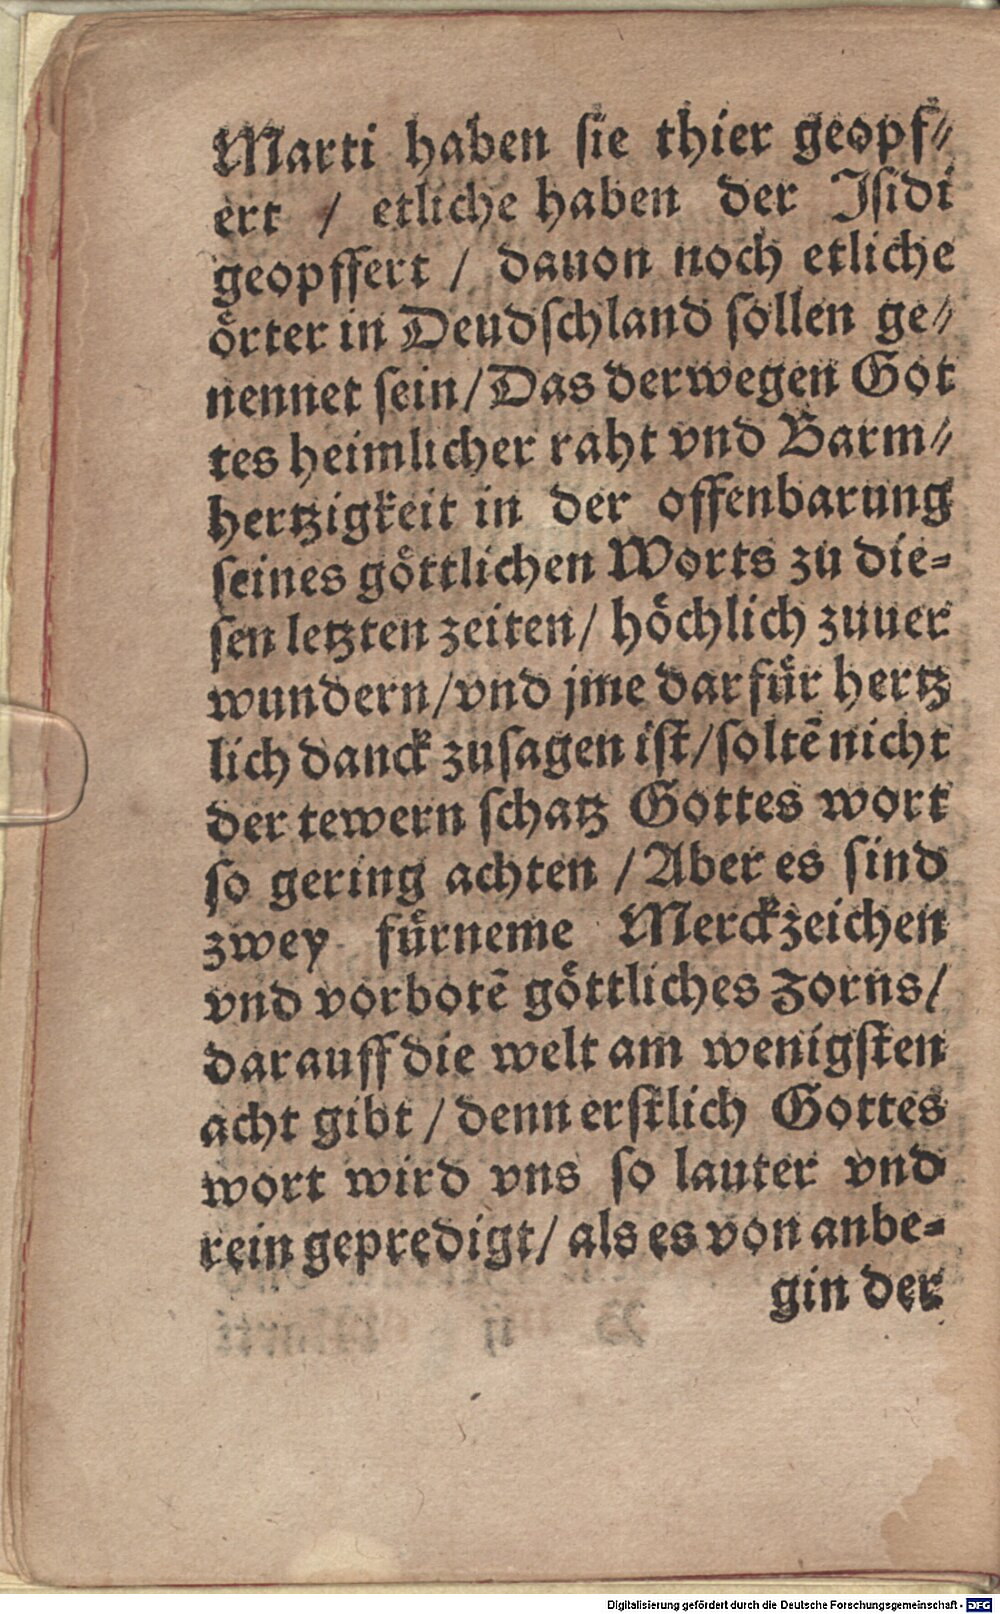 Marti haben ſie thier geopf⸗
ert / etliche haben der Iſidi
geopffert / dauon noch etliche
oͤrter in Deudſchland ſollen ge⸗
nennet ſein / Das derwegen Got
tes heimlicher raht vnd Barm⸗
hertzigkeit in der offenbarung
ſeines goͤttlichen Worts zu die⸗
ſen letzten zeiten / hoͤchlich zuuer
wundern / vnd jme darfuͤr hertz
lich danck zuſagen iſt / ſoltẽ nicht
der tewern ſchatz Gottes wort
ſo gering achten / Aber es ſind
zwey fuͤrneme Merckzeichen
vnd vorbotẽ goͤttliches zorns /
darauff die welt am wenigſten
acht gibt / denn erſtlich Gottes
wort wird vns ſo lauter vnd
rein gepredigt / als es von anbe⸗
gin der
Digitalisierung gefördert durch die Deutsche Forschungsgemeinschaft - DFG